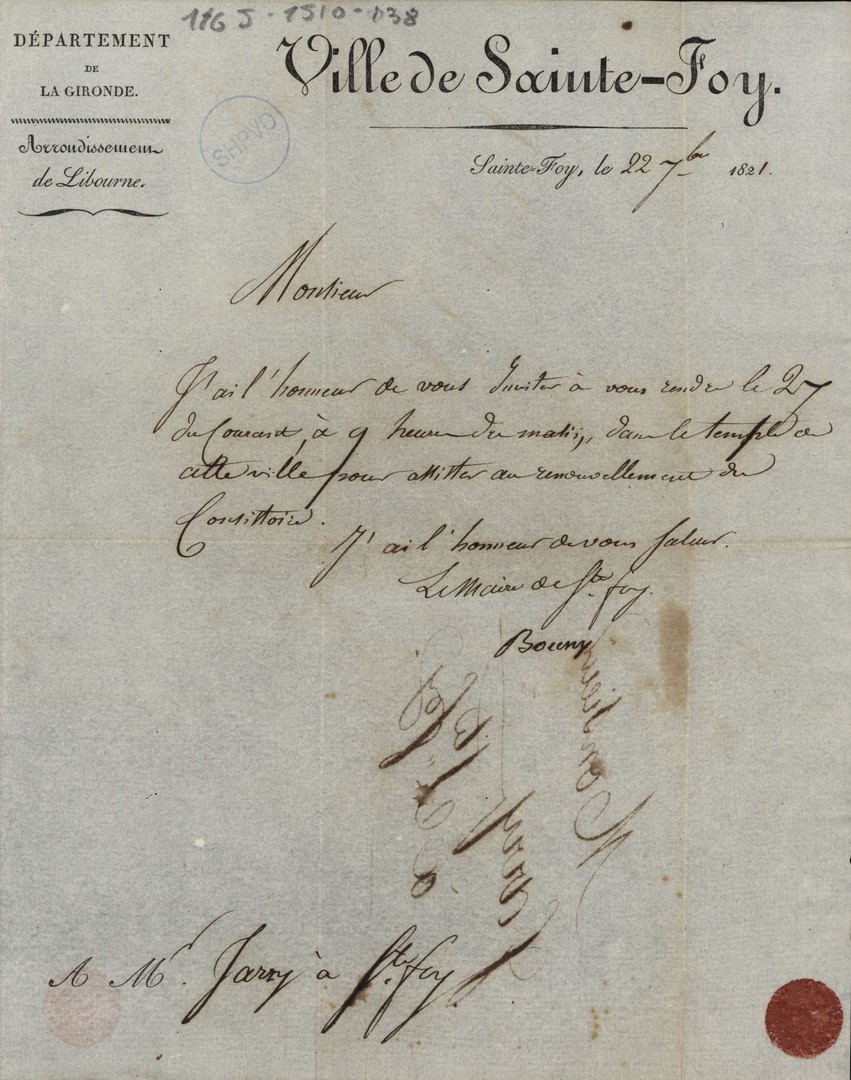 116 J - 1510 - 038
DÉPARTEMENT
DE
LA GIRONDE.
Arrondissement
de Libourne.
SHPVD
Ville de Sainte-Foy.
Sainte-Foy, le 22 7bre 1821.
Monsieur
J'ai l'honneur de vous Inviter à vous rendre le 27
du Courant, à 9 heures du matin, dans le temple de
cette ville pour assister au renouvellement du
Consistoire.
J'ai l'honneur de vous saluer.
Le Maire de Ste foy.
Bouny
A Mr. Jarry à Ste foy